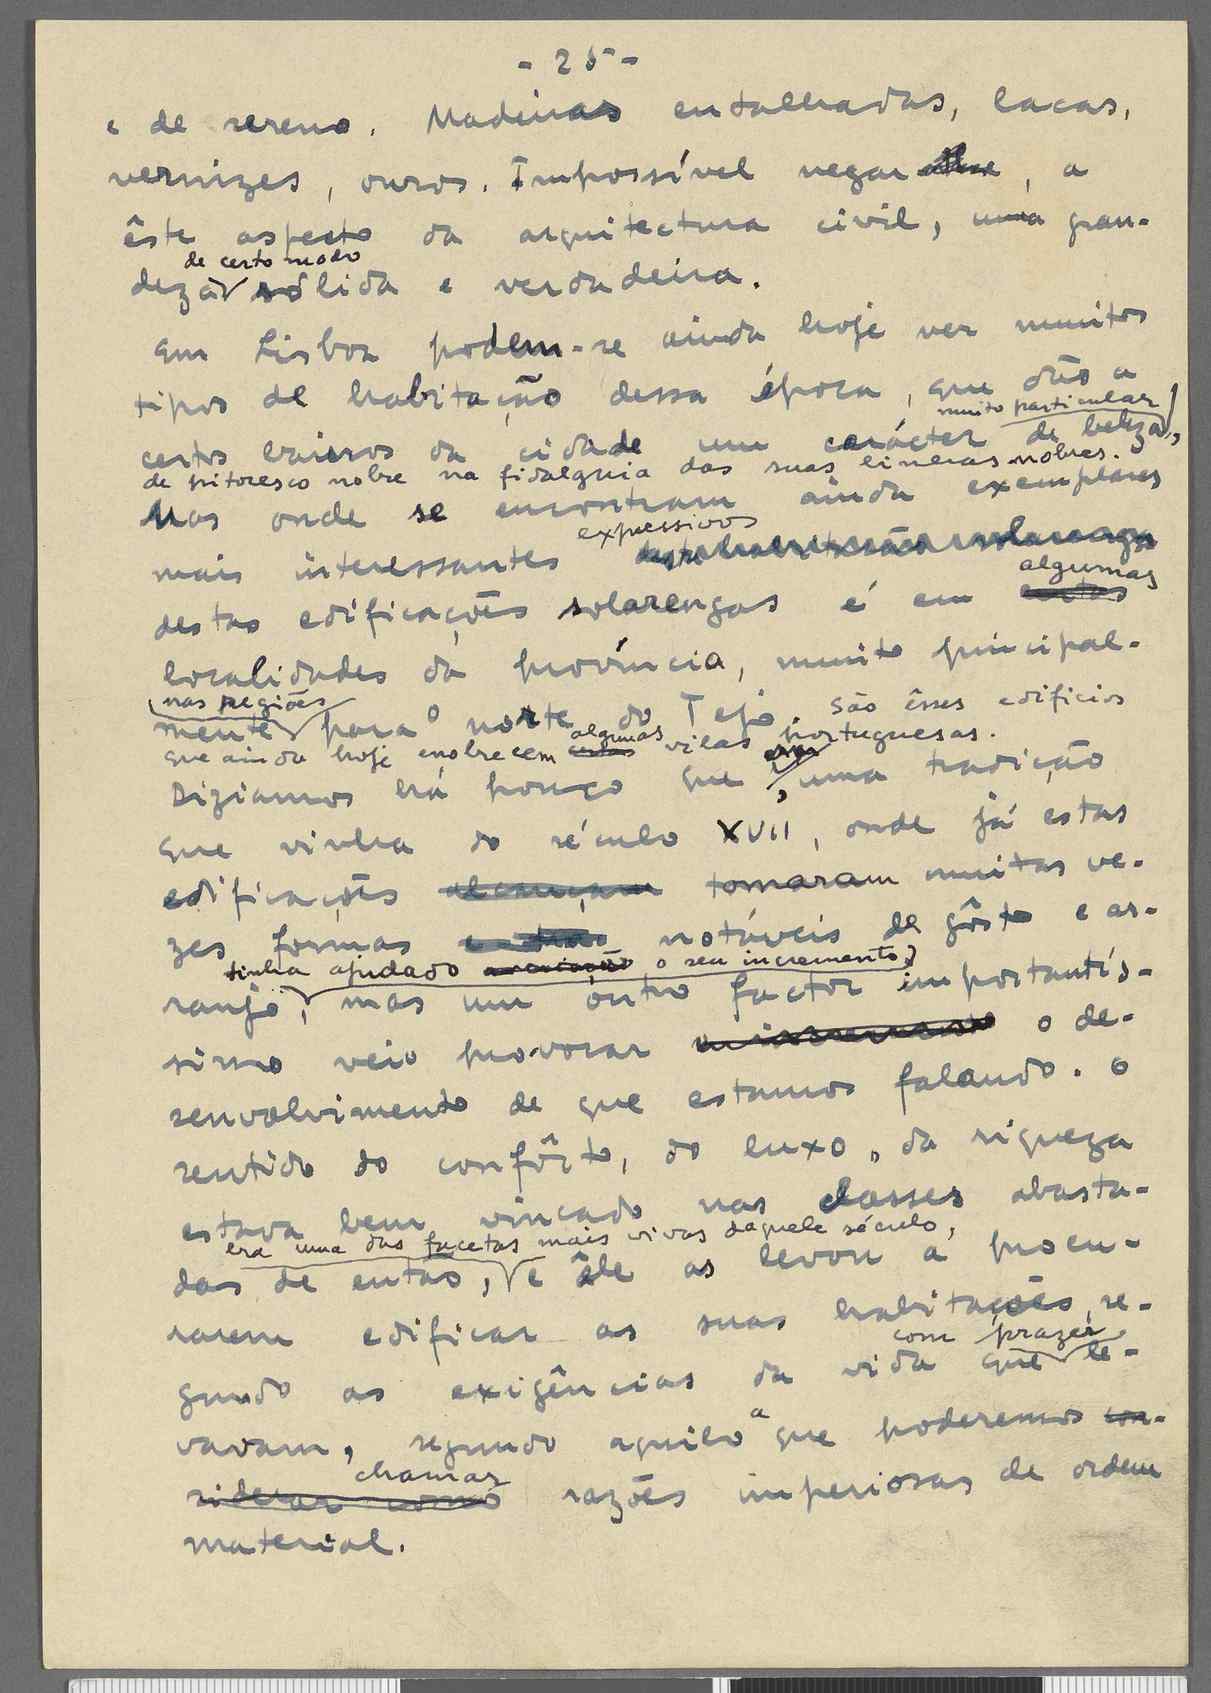 - 25 -
e de sereno. Madeiras entalhadas, lacas,
vernizes, ouros. Impossível negar, a
êste aspecto da arquitectura civil, uma gran-
de certo modo
deza sólida e verdadeira.
Em Lisboa podem-se ainda hoje ver muitos
tipos de habitação dessa época, que dão a
muito particular
certos bairros da cidade um carácter de beleza,
de pitoresco nobre na fidalguia das suas linhas nobres.
Mas onde se encontram ainda exemplares
expressivos
mais interessantes
algumas
destas edificações solarengas é em certas
localidades da província, muito principal-
nas regiões
mente para o norte do Tejo. São êsses edificios
algumas
que ainda hoje enobrecem certas vilas portuguesas.
Diziamos há pouco que, uma tradição
que vinha do século XVII, onde já estas
edificações alcançam tomaram muitas ve-
zes formas notáveis de gôsto e ar-
tinha ajudado o seu incremento,
ranjo, mas um outro factor importantís-
simo veio provocar o incremento o de-
senvolvimento de que estamos falando. O
sentido do confôrto, do luxo, da riqueza
estava bem vincado nas classes abasta-
era uma das facetas mais vivas daquele século,
das de então, e êle as levou a procu-
rarem edificar as suas habitações, se-
com prazer
gundo as exigências da vida que le-
a
vavam, segundo aquilo que poderemos con-
chamar
siderar como razões imperiosas de ordem
material.